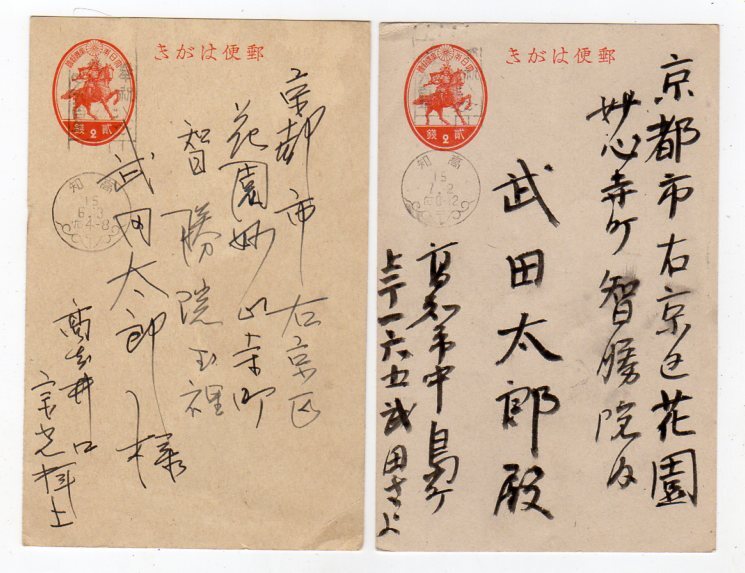 きがは便郵
大日本帝国郵便
銭 2 貳
高知
15
6.3
4-8
京都市右京区
花園妙心寺町
智勝院
武田太郎様
高知井口
きがは便郵
大日本帝国郵便
銭 2 貳
高知
15
7.2
8-12
京都市右京区花園
妙心寺町智勝院内
武田太郎殿
高知市中島町
武田